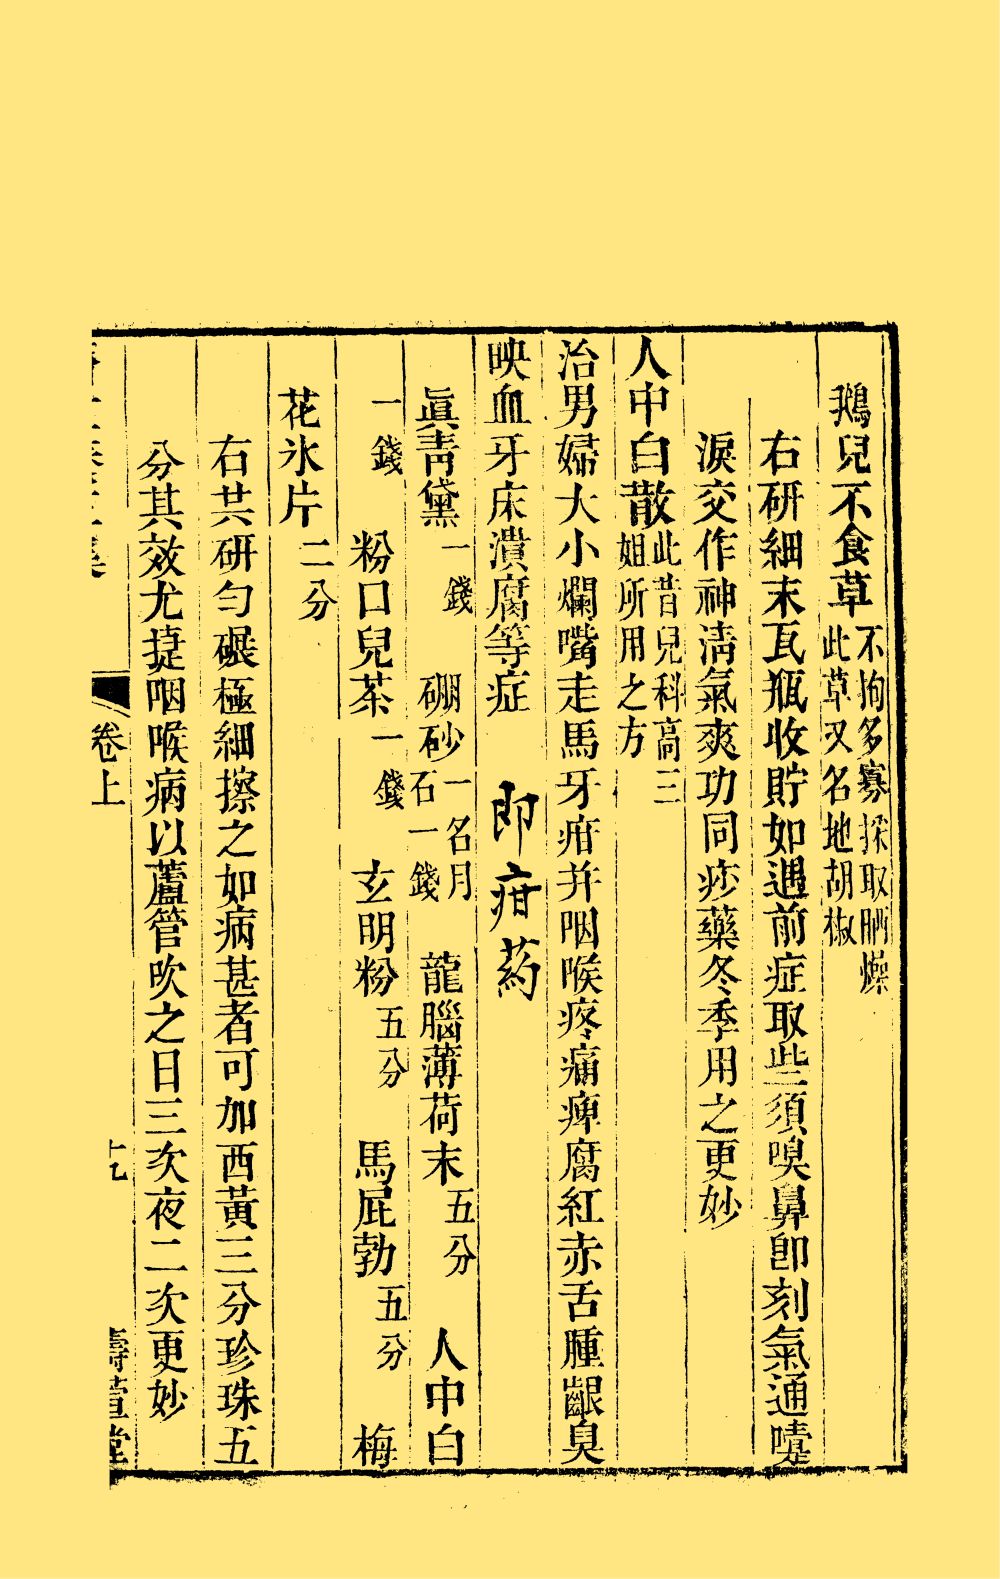 鵝兒不食草不拘多寡採取晒燥此草又名地胡椒
右研細末瓦瓶收貯如遇前症取些須嗅鼻卽刻氣通嚏
淚交作神淸氣爽功同痧藥冬季用之更妙
人中白散此昔兒科高三姐所用之方
治男婦大小爛嘴走馬牙疳并咽喉疼痛痺腐紅赤舌腫齦臭
映血牙床潰腐等症 即疳药
眞靑黛一錢 硼砂一名月石一錢 龍腦薄荷末五分 人中白
一錢 粉口兒茶一錢 玄明粉五分 馬屁勃五分 梅
花氷片二分
右共研勻碾極細擦之如病甚者可加西黃三分珍珠五
分其效尤㨗咽喉病以蘆管吹之日三次夜二次更妙
卷上 九 壽萱堂